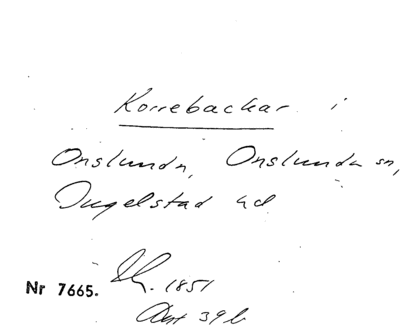 Korrebackar i
Onslunda, Onslunda sn,
Ingelstad hd
Nr 7665. 1851
Akt 39 b